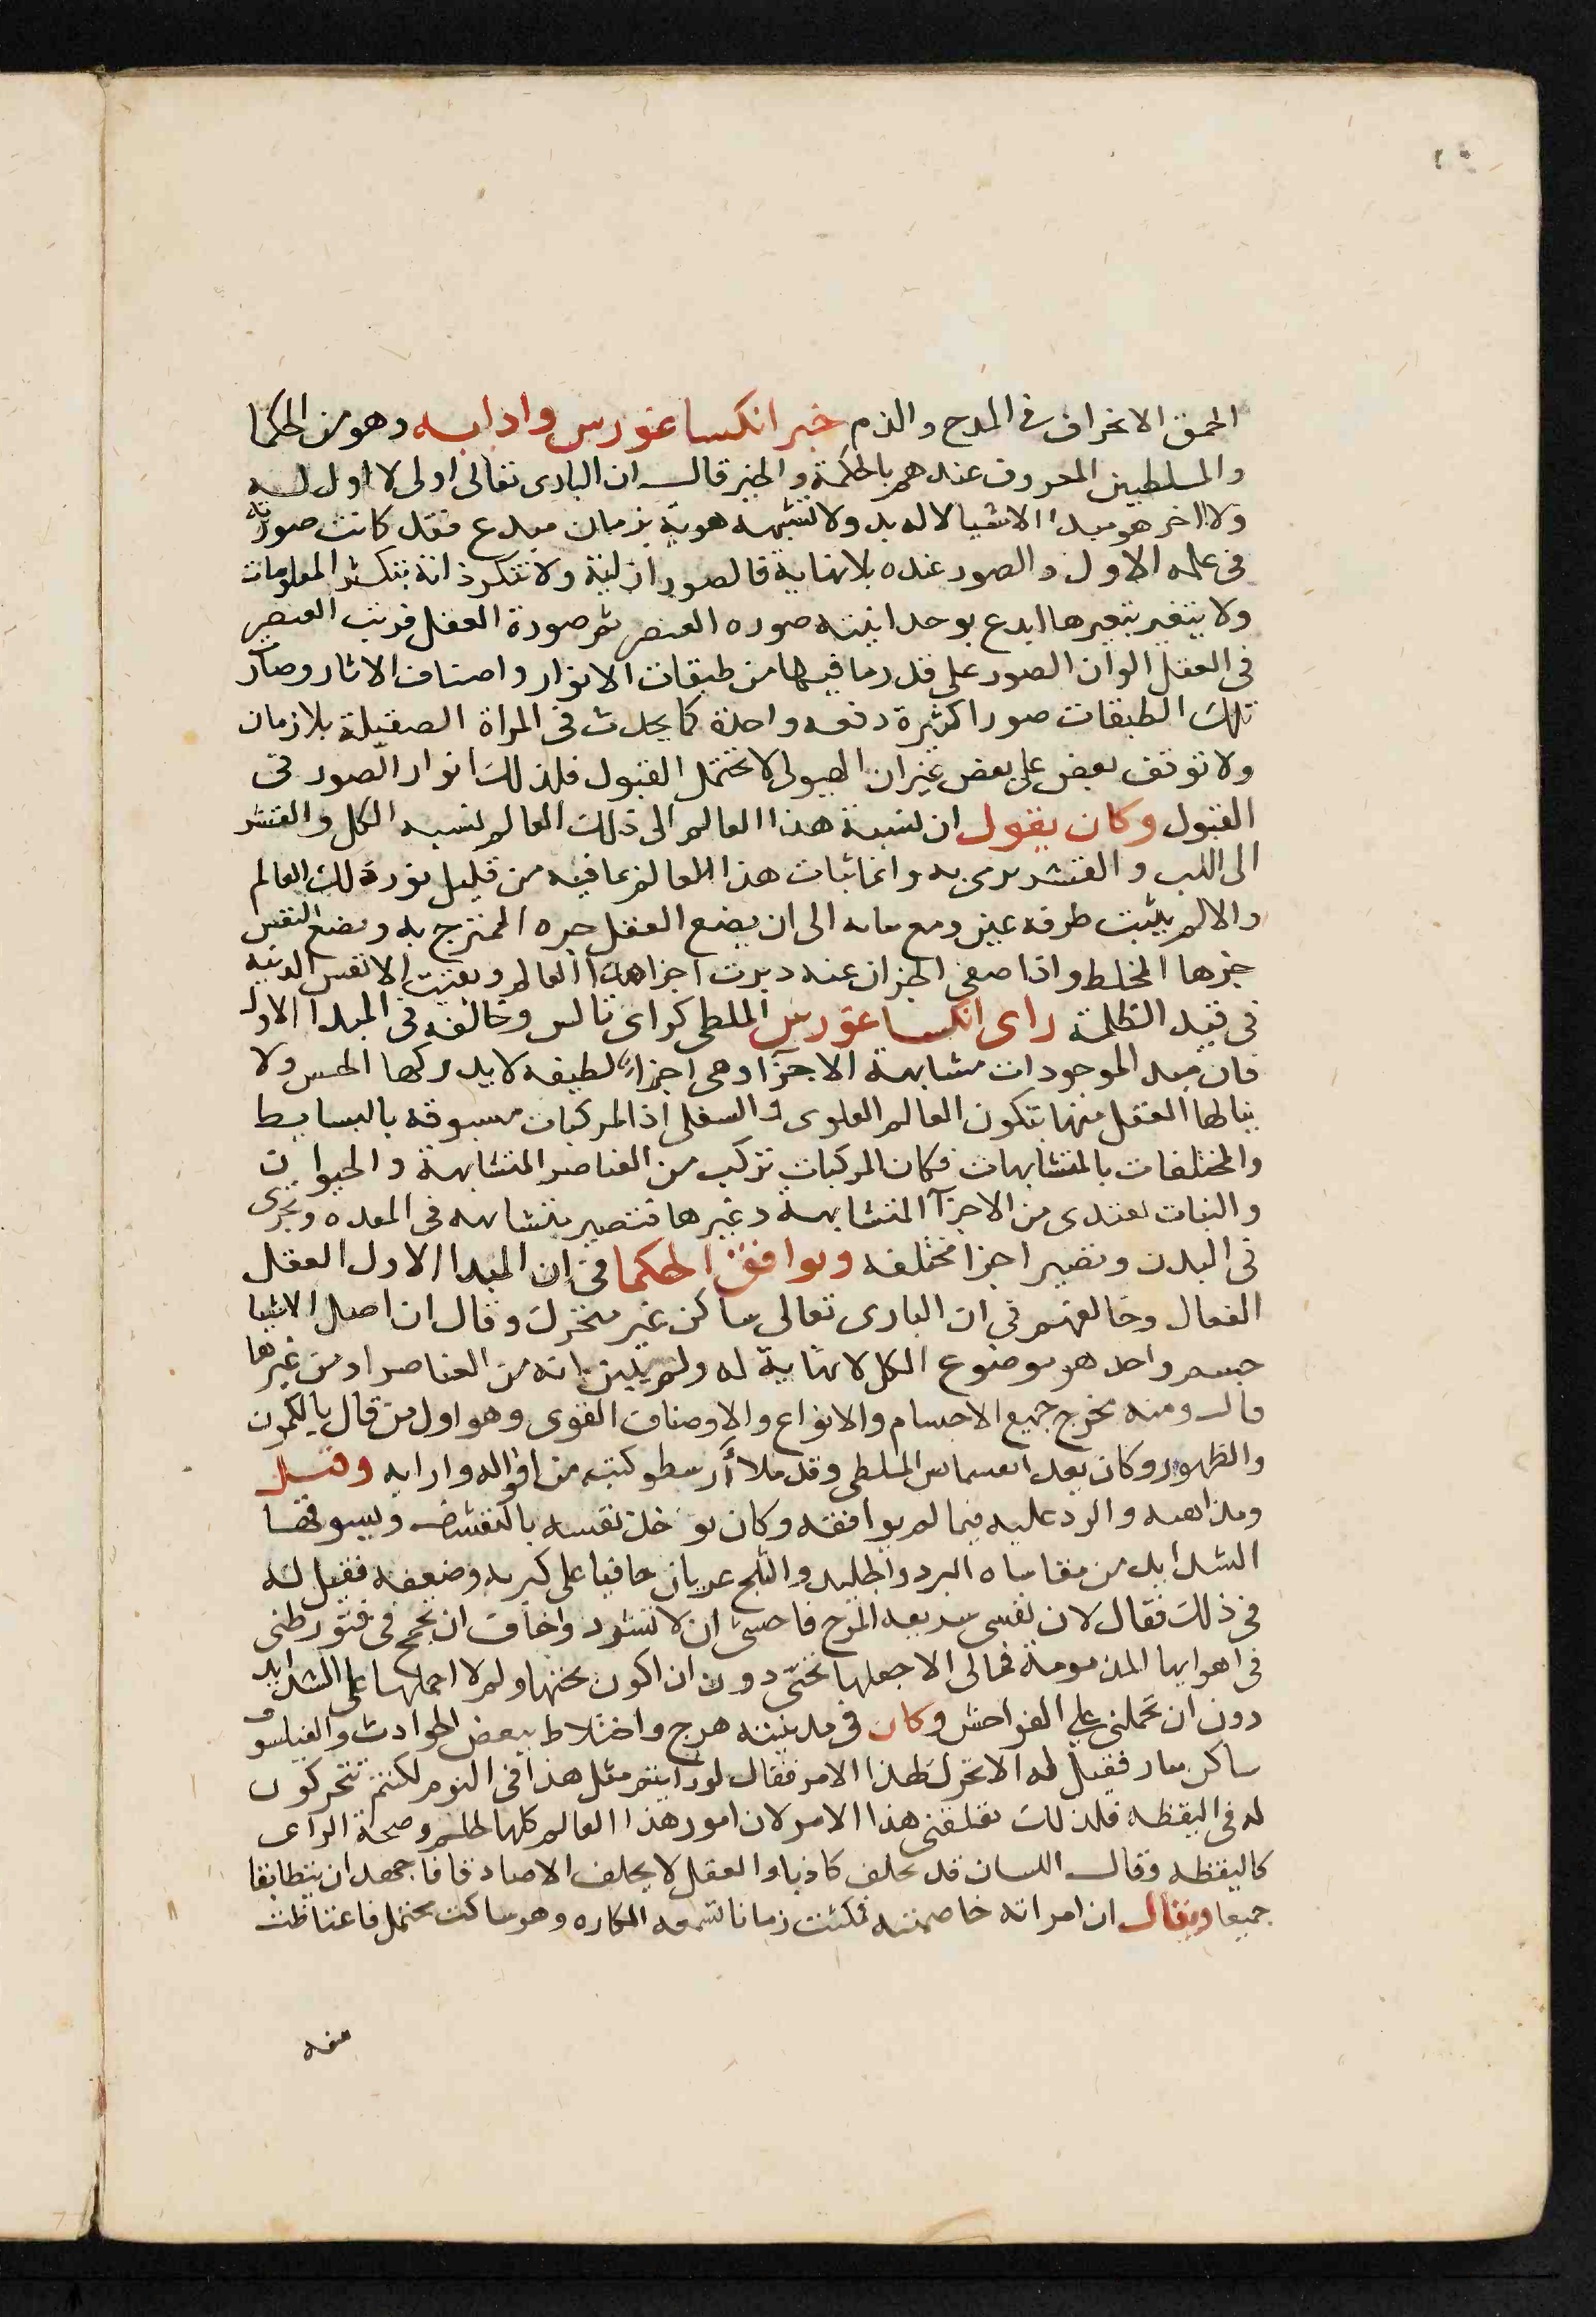 الحمق الانحراف فى المدح والذم خبر انكساغورس وادابه وهو من الحكما
والملطيين المعروف عندهم بالحكمة والخير قال ان البارى تعالى اولى لا اول له
ولا اخر هو مبدا الاشيا لا له بد ولا تشبهه هوية بزمان مبدع فقد كانت صورته
فى علمه الاول والصور عنده بلا نهاية فالصور ازلية ولا تتكرر ذاته بتكثر المعلومات
ولا يتغير بتغيرها ابدع بوحدانيته صوره العنصر ثم صورة العقل فرتب العنصر
فى العقل الوان الصور على قدر ما فيها من طبقات الانوار واصناف الاثار وصار
تلك الطبقات صورا كثيرة دفعه واحدة كما يحدث فى المراة الصقيلة بلا زمان
ولا توقف بعض على بعض غير ان الهيولى لا تحتمل القبول فلذلك انوار الصور فى
القبول وكان يقول ان نسبة هذا العالم الى ذلك العالم نسبه الكل والقشر
الى اللب والقشر يرمى به وانما ثبات هذا العالم بما فيه من قليل نور ذلك العالم
والا لم يثبت طرفه عين ومع الى ان يضع العقل جزه الممتزج به ويضع النفس
جزها المختلط واذا صفى الجزان عنه دبرت اجزا هذا العالم وبقيت الانفس الدنيه
فى قيد الظلمة راى انكساغورس الملطى كراى تالس وخالفه فى المبدا الاول
فان مبدا الموجودات متشابهة الاجزا وهى اجزاء لطيفه لا يدركها الحس ولا
ينالها العقل منها يتكون العالم العلوى والسفلى اذ المركبات مسبوقه بالبسايط
والمختلفات بالمتشابهات فكان المركبات تركب من العناصر المتشابهة والحيوان
والنبات تغتدى من الاجزا المتشابهة وغيرها فتصير متشابهه فى المعده وتجرى
فى البدن وتصير اجزا مختلفه ويوافق الحكما فى ان المبدا الاول العقل
الفعال وخالفهم فى ان البارى تعالى ساكن غير متحرك وقال ان اصل الاشيا
جسم واحد هو موضوع الكل لا نهاية له ولم يبين انه من العناصر او من غيرها
قال ومنه يخرج جميع الاجسام والانواع والاوصناف القوى وهو اول من قال بالكمون
والظهور وكان بعد الملطى وقد ملا أرسطو كتبه من اقواله وارايه
ومذاهبه والرد عليه فيما لم يوافقه وكان نفسه بالتقشف ويسوقها
الشدايد من مقاساه البرد والجليد والثلج عريان حافيا على كبره وضعفه فقيل له
فى ذلك فقال لان نفسى سريعه المرح فاخشى ان لا تشرد واخاف ان تجمح فى فتورطنى
فى اهوايها المذمومة فمالى الا اجعلها تحتى دون ان اكون تحتها ولم لا احملها على الشدايد
دون ان تحملنى على الفواحش وكان فى مدينته هرج واختلاط ببعض الحوادث والفيلسوف
ساكن فقيل له الا تحرك لهذا الامر فقال لو رايتم مثل هذا فى النوم لكنتم تتحركون
له فى اليقظه فلذلك تقلقنى هذا الامر لان امور هذا العالم كلها كالحلم وصحة الراى
كاليقظه وقال اللسان قد يحلف كاذبا والعقل لا يحلف الا صادقا فاجهد ان يتطابقا
جميعا ويقال ان امراته خاصمته فمكثت زمانا تسمعه المكاره وهو ساكت يحتمل فاغتاظت
منه